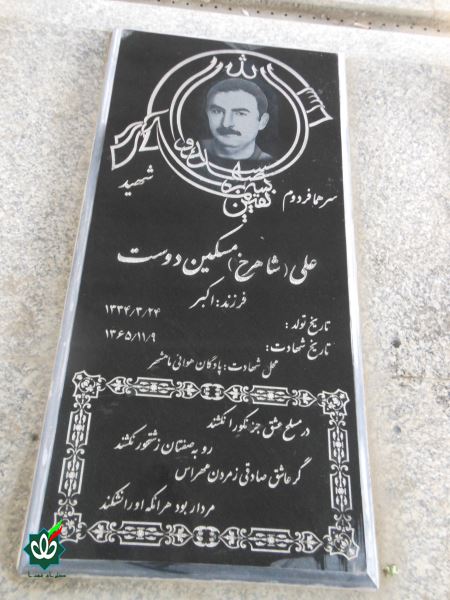 الله
اکبر
شهید
سرهمافر دوم
علی (شاهرخ) مسکین دوست
فرزند: اکبر
تاریخ تولد: ۱۳۳۴/۳/۲۴
تاریخ شهادت: ۱۳۶۵/۱۱/۹
محل شهادت: پادگان هوائی ماهشهر
در مسلخ عشق جز نکو را نکشند
روبه صفتان زشتخو را نکشند
گر عاشق صادقی ز مردن مهراس
مردار بود هرآنکه او را نکشند